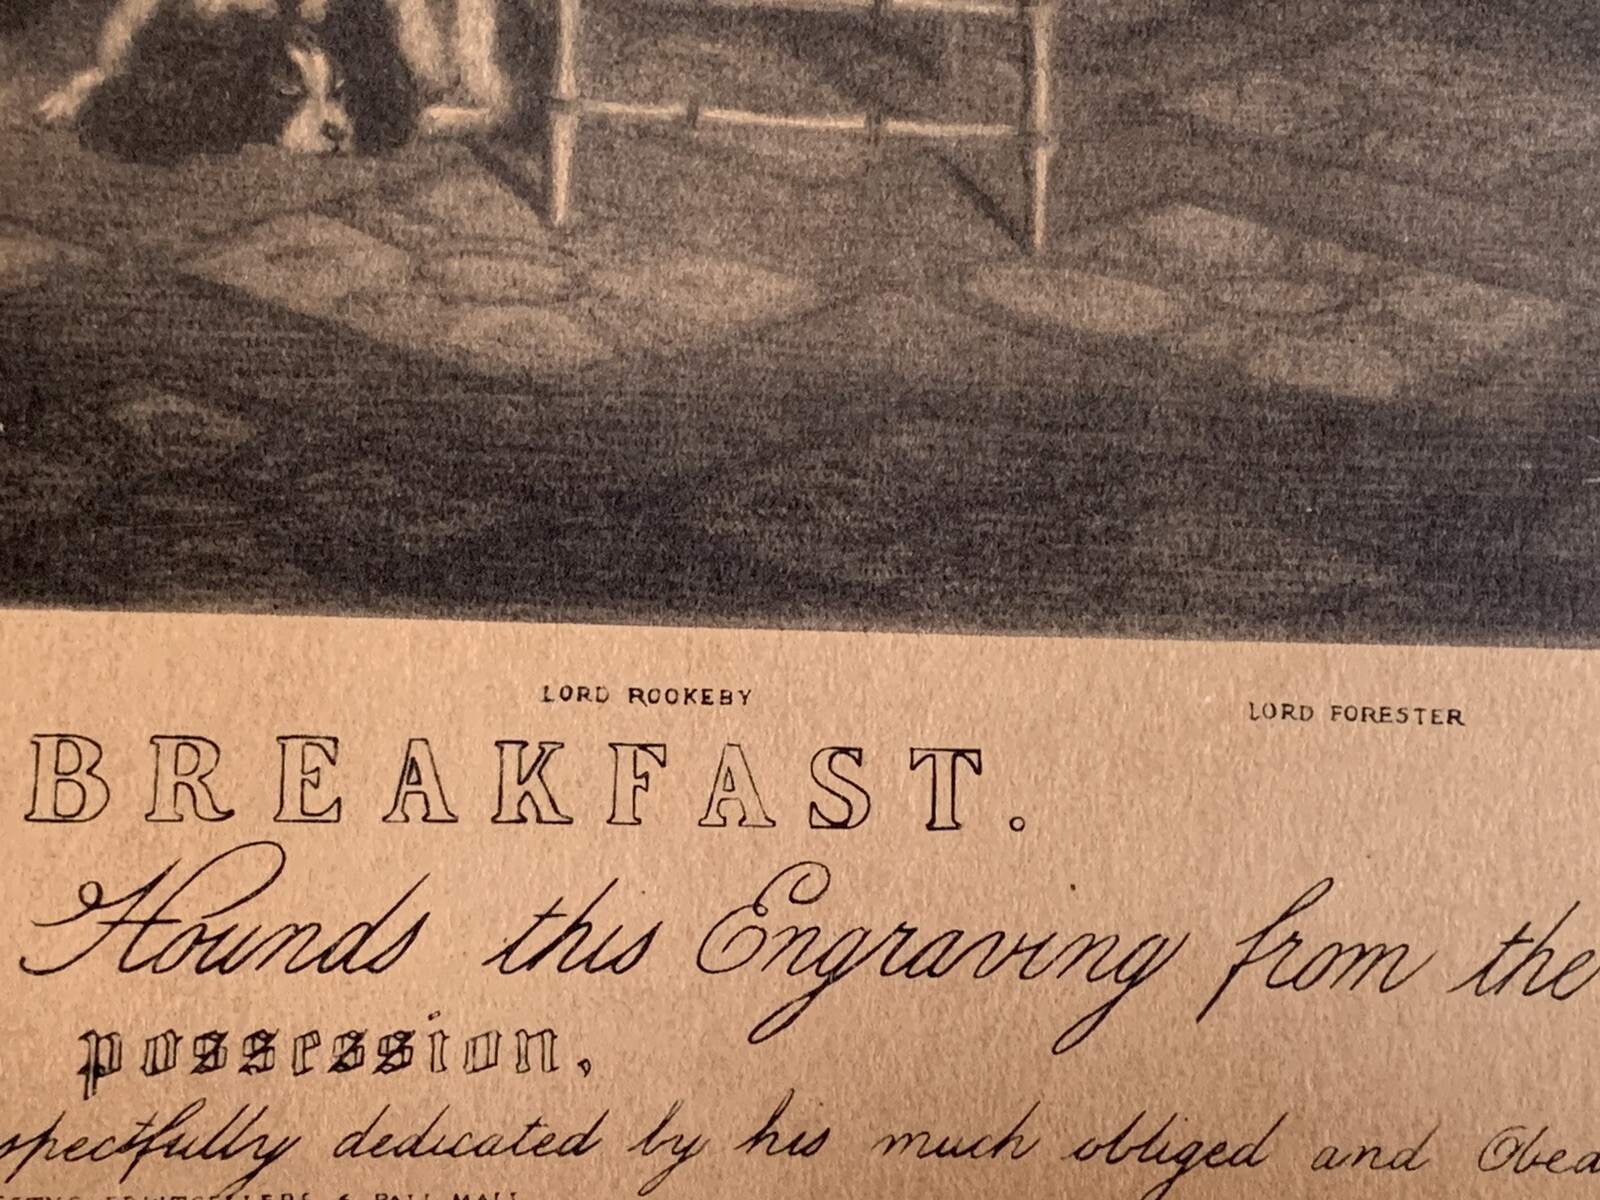 LORD ROOKEBY
LORD FORESTER
BREAKFAST.
Hounds this Engraving from the
possession,
spectfully dedicated by his much obliged and Obed
PRINTSELLERS 6 PALL MALL